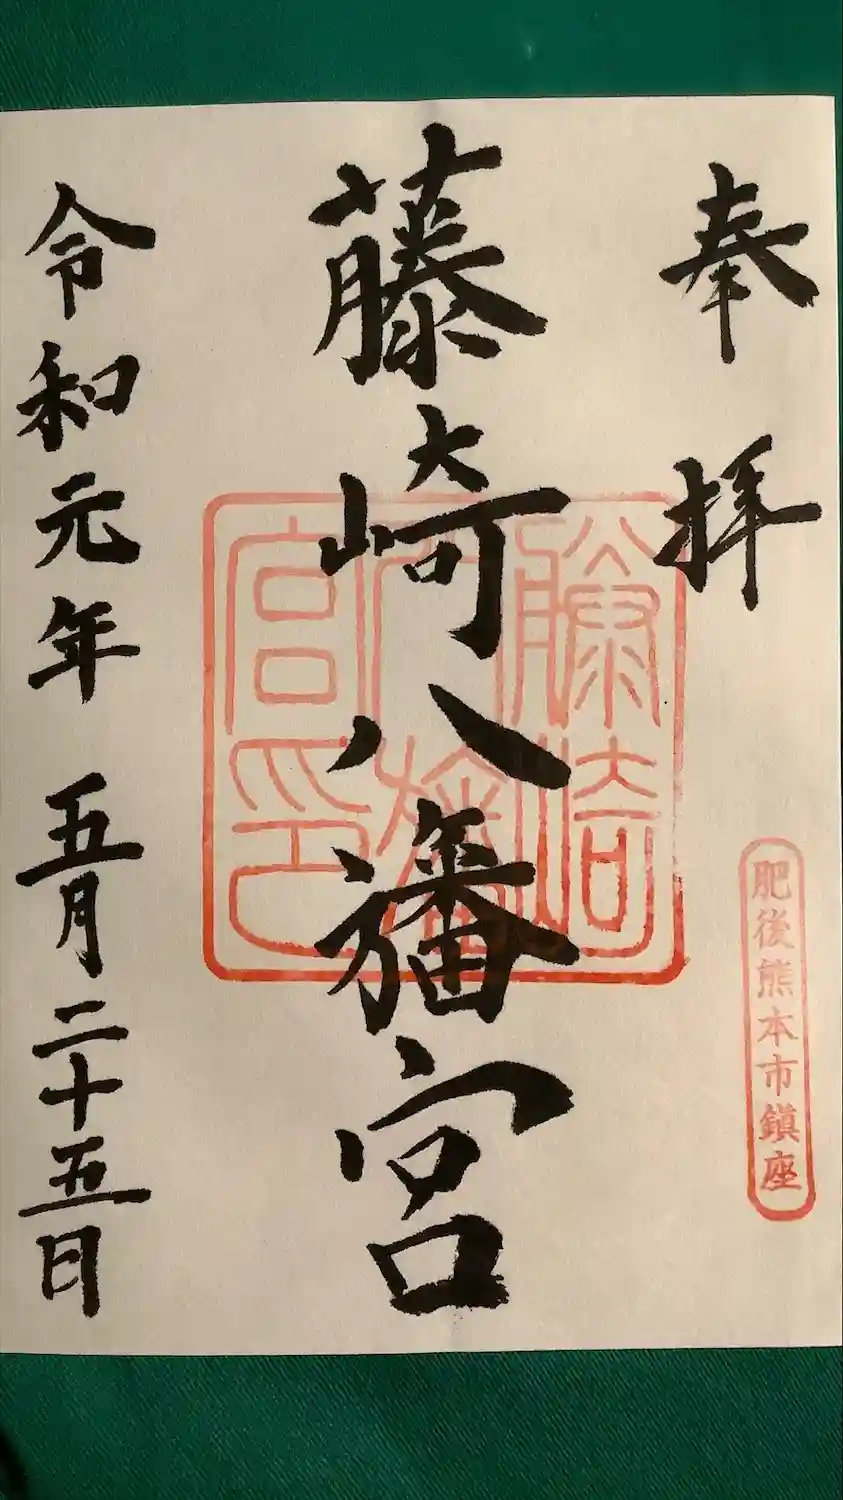 奉拝
肥後熊本市鎮座
藤崎八旛宮
藤崎八旛宮印
令和元年五月二十五日